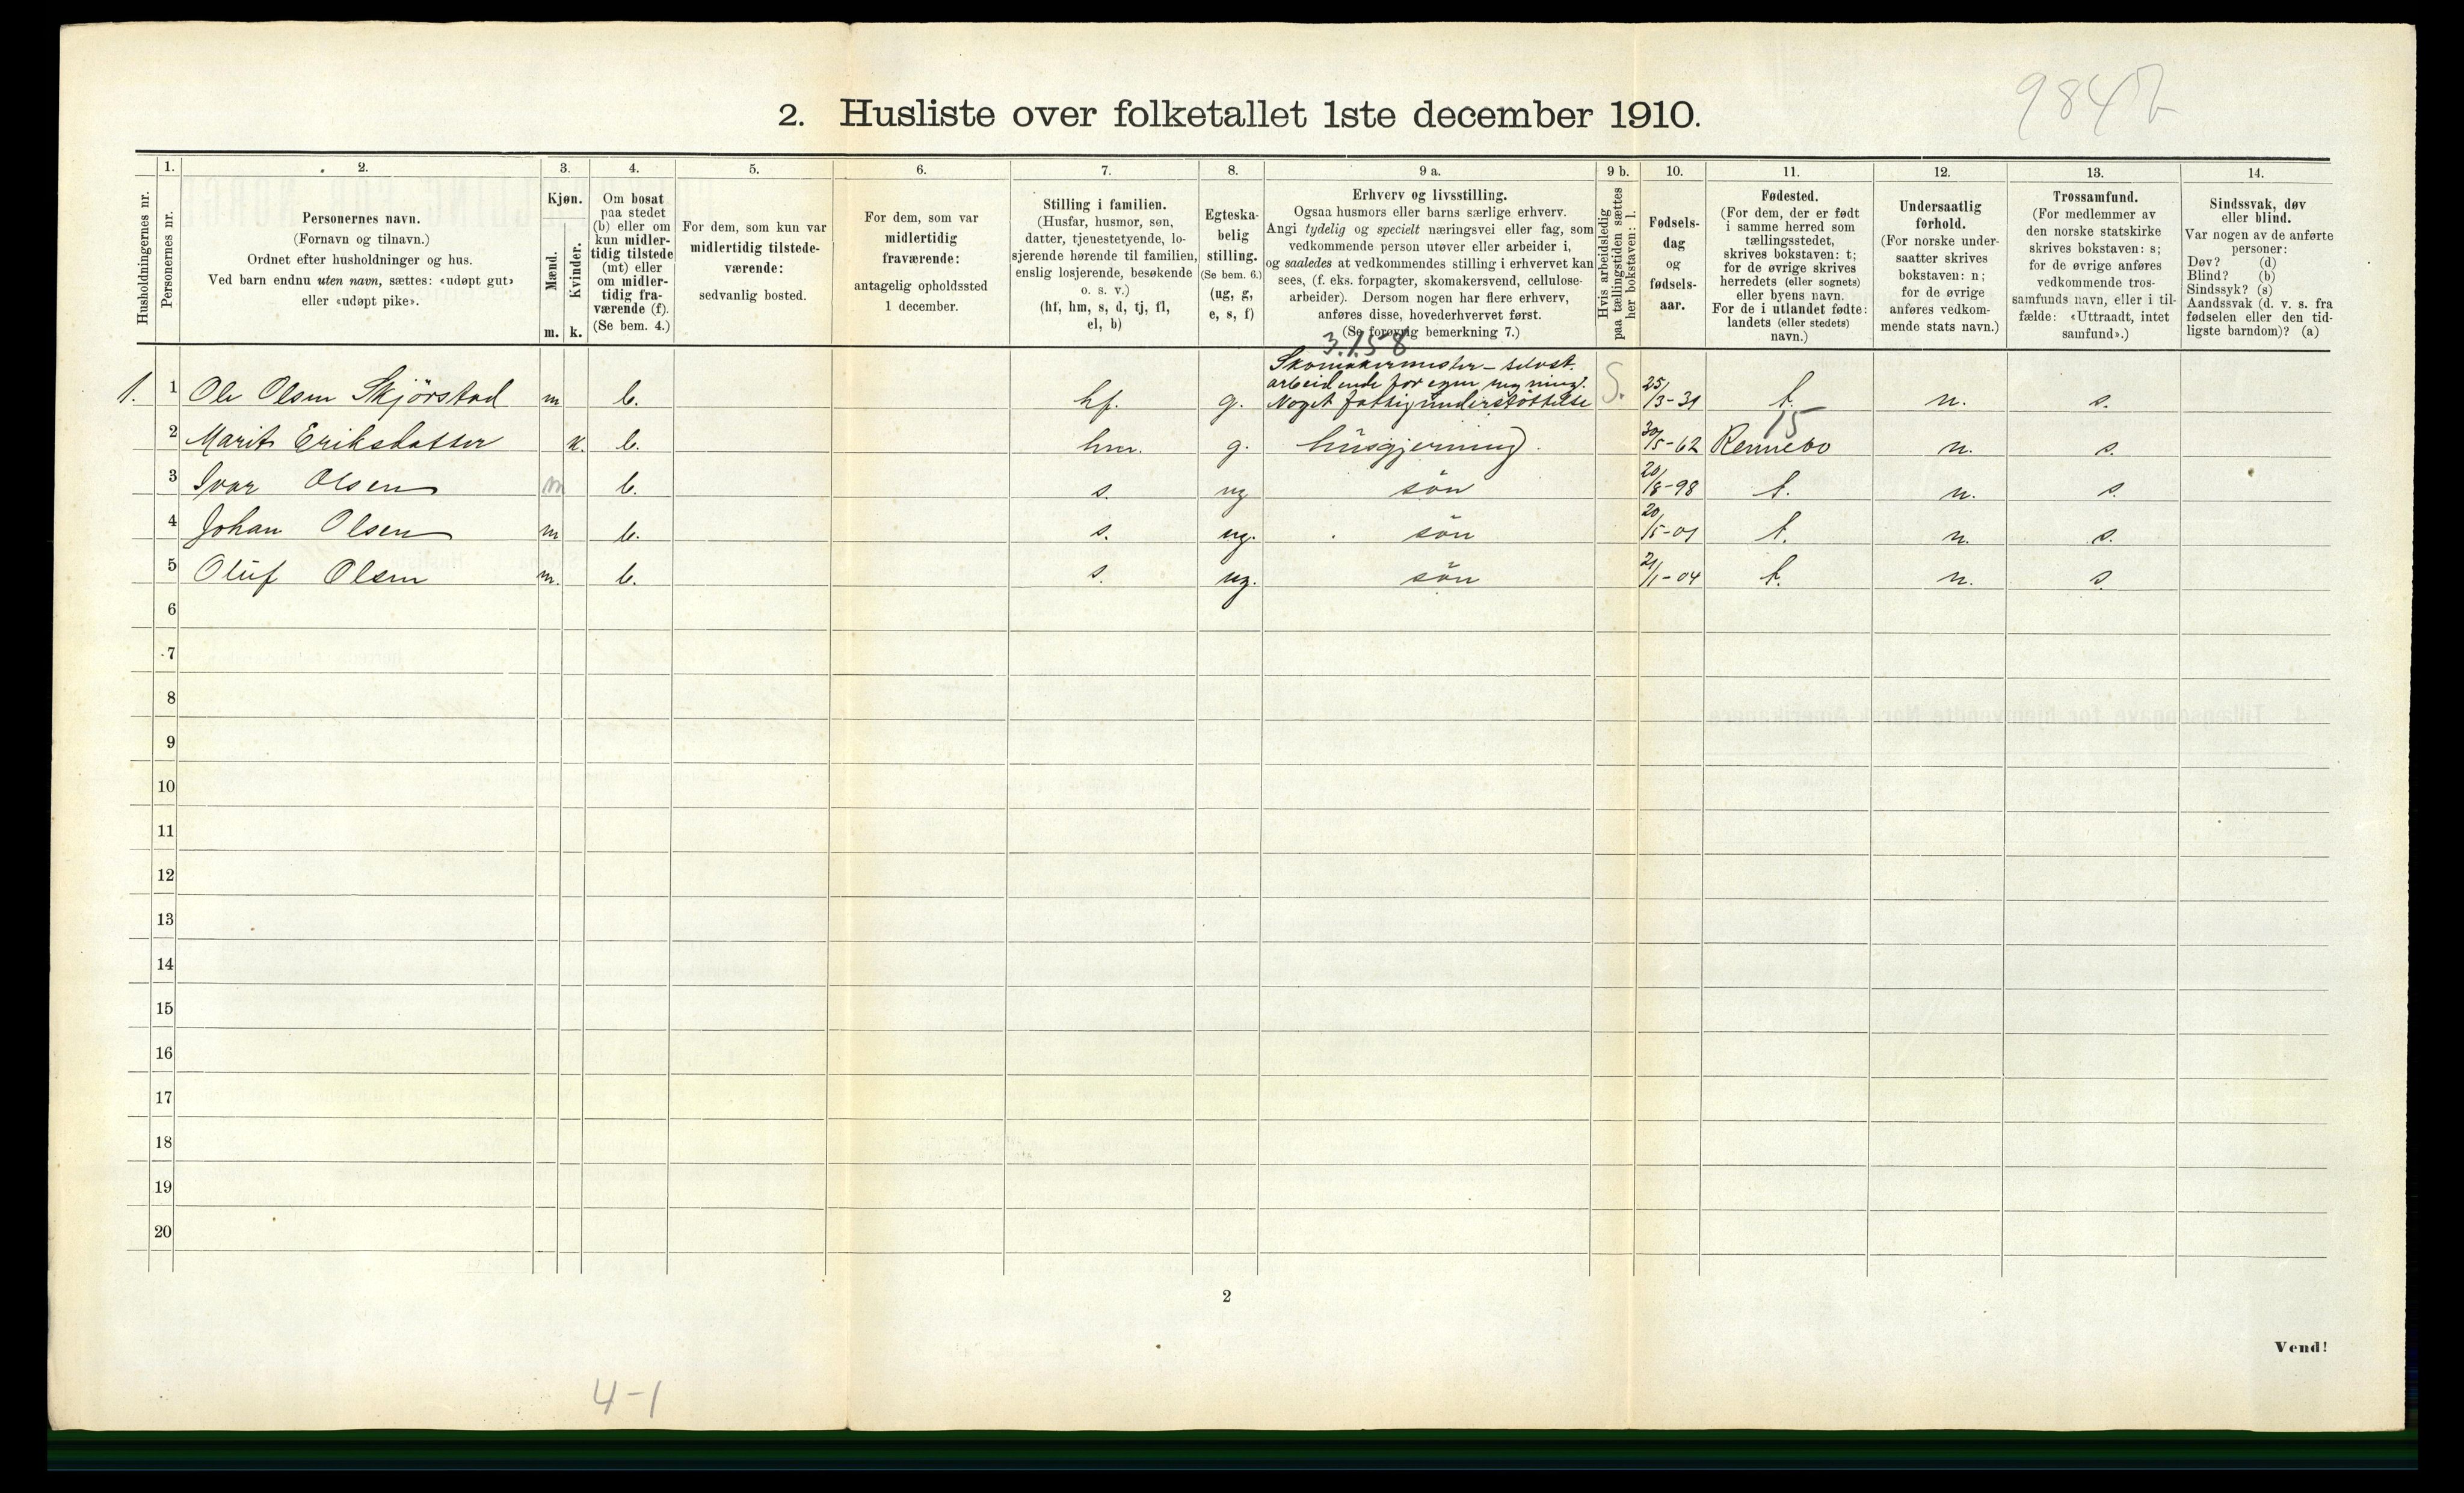 2. Husliste over folketallet 1ste december 1910.
984
Husholdningernes nr.
1.
Personernes nr.
2.
Personernes navn.
(Fornavn og tilnavn.)
Ordnet efter husholdninger og hus.
Ved barn endnu uten navn, sættes: «udøpt gut»
eller «udøpt pike».
3.
Kjøn.
Mænd.
Kvinder.
m. k.
4.
Om bosat
paa stedet
(b) eller om
kun midler-
tidig tilstede
(mt) eller
om midler-
tidig fra-
værende (f).
(Se bem. 4.)
5.
For dem, som kun var
midlertidig tilstede-
værende:
sedvanlig bosted.
6.
For dem, som var
midlertidig
fraværende:
antagelig opholdssted
1 december.
7.
Stilling i familien.
(Husfar, husmor, søn,
datter, tjenestetyende, lo-
sjerende hørende til familien,
enslig losjerende, besøkende
o. s. v.)
(hf, hm, s, d, tj, fl,
el, b)
8.
Egteska-
belig
stilling.
(Se bem. 6.)
(ug, g,
e, s, f)
9 a.
Erhverv og livsstilling.
Ogsaa husmors eller barns særlige erhverv.
Angi tydelig og specielt næringsvei eller fag, som
vedkommende person utøver eller arbeider i,
og saaledes at vedkommendes stilling i erhvervet kan
sees, (f. eks. forpagter, skomakersvend, cellulose-
arbeider). Dersom nogen har flere erhverv,
anføres disse, hovederhvervet først.
(Se forøvrig bemerkning 7.)
9 b.
Hvis arbeidsledig
paa tællingstiden sættes
her bokstaven: l.
10.
Fødsels-
dag
og
fødsels-
aar.
11.
Fødested.
(For dem, der er født
i samme herred som
tællingsstedet,
skrives bokstaven: t;
for de øvrige skrives
herredets (eller sognets)
eller byens navn.
For de i utlandet fødte:
landets (eller stedets)
navn.)
12.
Undersaatlig
forhold.
(For norske under-
saatter skrives
bokstaven: n;
for de øvrige
anføres vedkom-
mende stats navn.)
13.
Trossamfund.
(For medlemmer av
den norske statskirke
skrives bokstaven: s;
for de øvrige anføres
vedkommende tros-
samfunds navn, eller i til-
fælde: «Uttraadt, intet
samfund».)
14.
Sindssvak, døv
eller blind.
Var nogen av de anførte
personer:
Døv? (d)
Blind? (b)
Sindssyk? (s)
Aandssvak (d. v. s. fra
fødselen eller den tid-
ligste barndom)? (a)
3.1.5-8
Skomakermester - selvst.
arbeidende for egen regning.
1. 1 Ole Olsen Skjörstad m b. hf. g. Noget fattigunderstöttelse S. 25/3-31 t. n. s.
15
2 Marit Eriksdatter k. b. hm. g. husgjerning. 30/5-62 Rennebo n. s.
3 Ivar Olsen m b. s. ug sön 20/8-98 t. n. s.
4 Johan Olsen m b. s. ug. sön 20/5-01 t. n. s.
5 Oluf Olsen m. b. s. ug. sön 21/1-04 t. n. s
6
7
8
9
10
11
12
13
14
15
16
17
18
19
20
2
Vend!
4-1